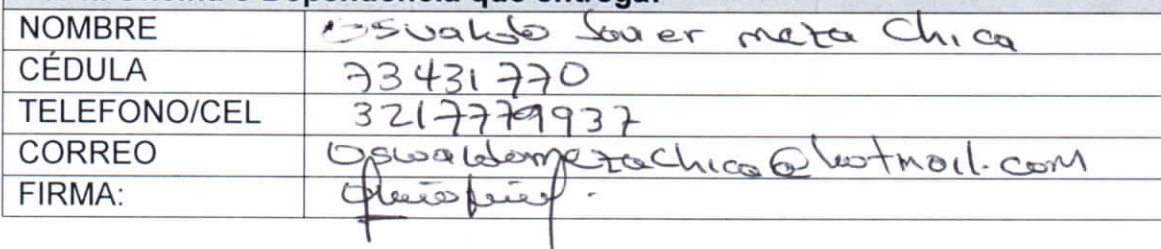 Oficina o Dependencia que entrega:
NOMBRE Osvaldo Javier meza Chica
CÉDULA 73431770
TELEFONO/CEL 3217779937
CORREO Oswaldomezachica@hotmail.com
FIRMA: